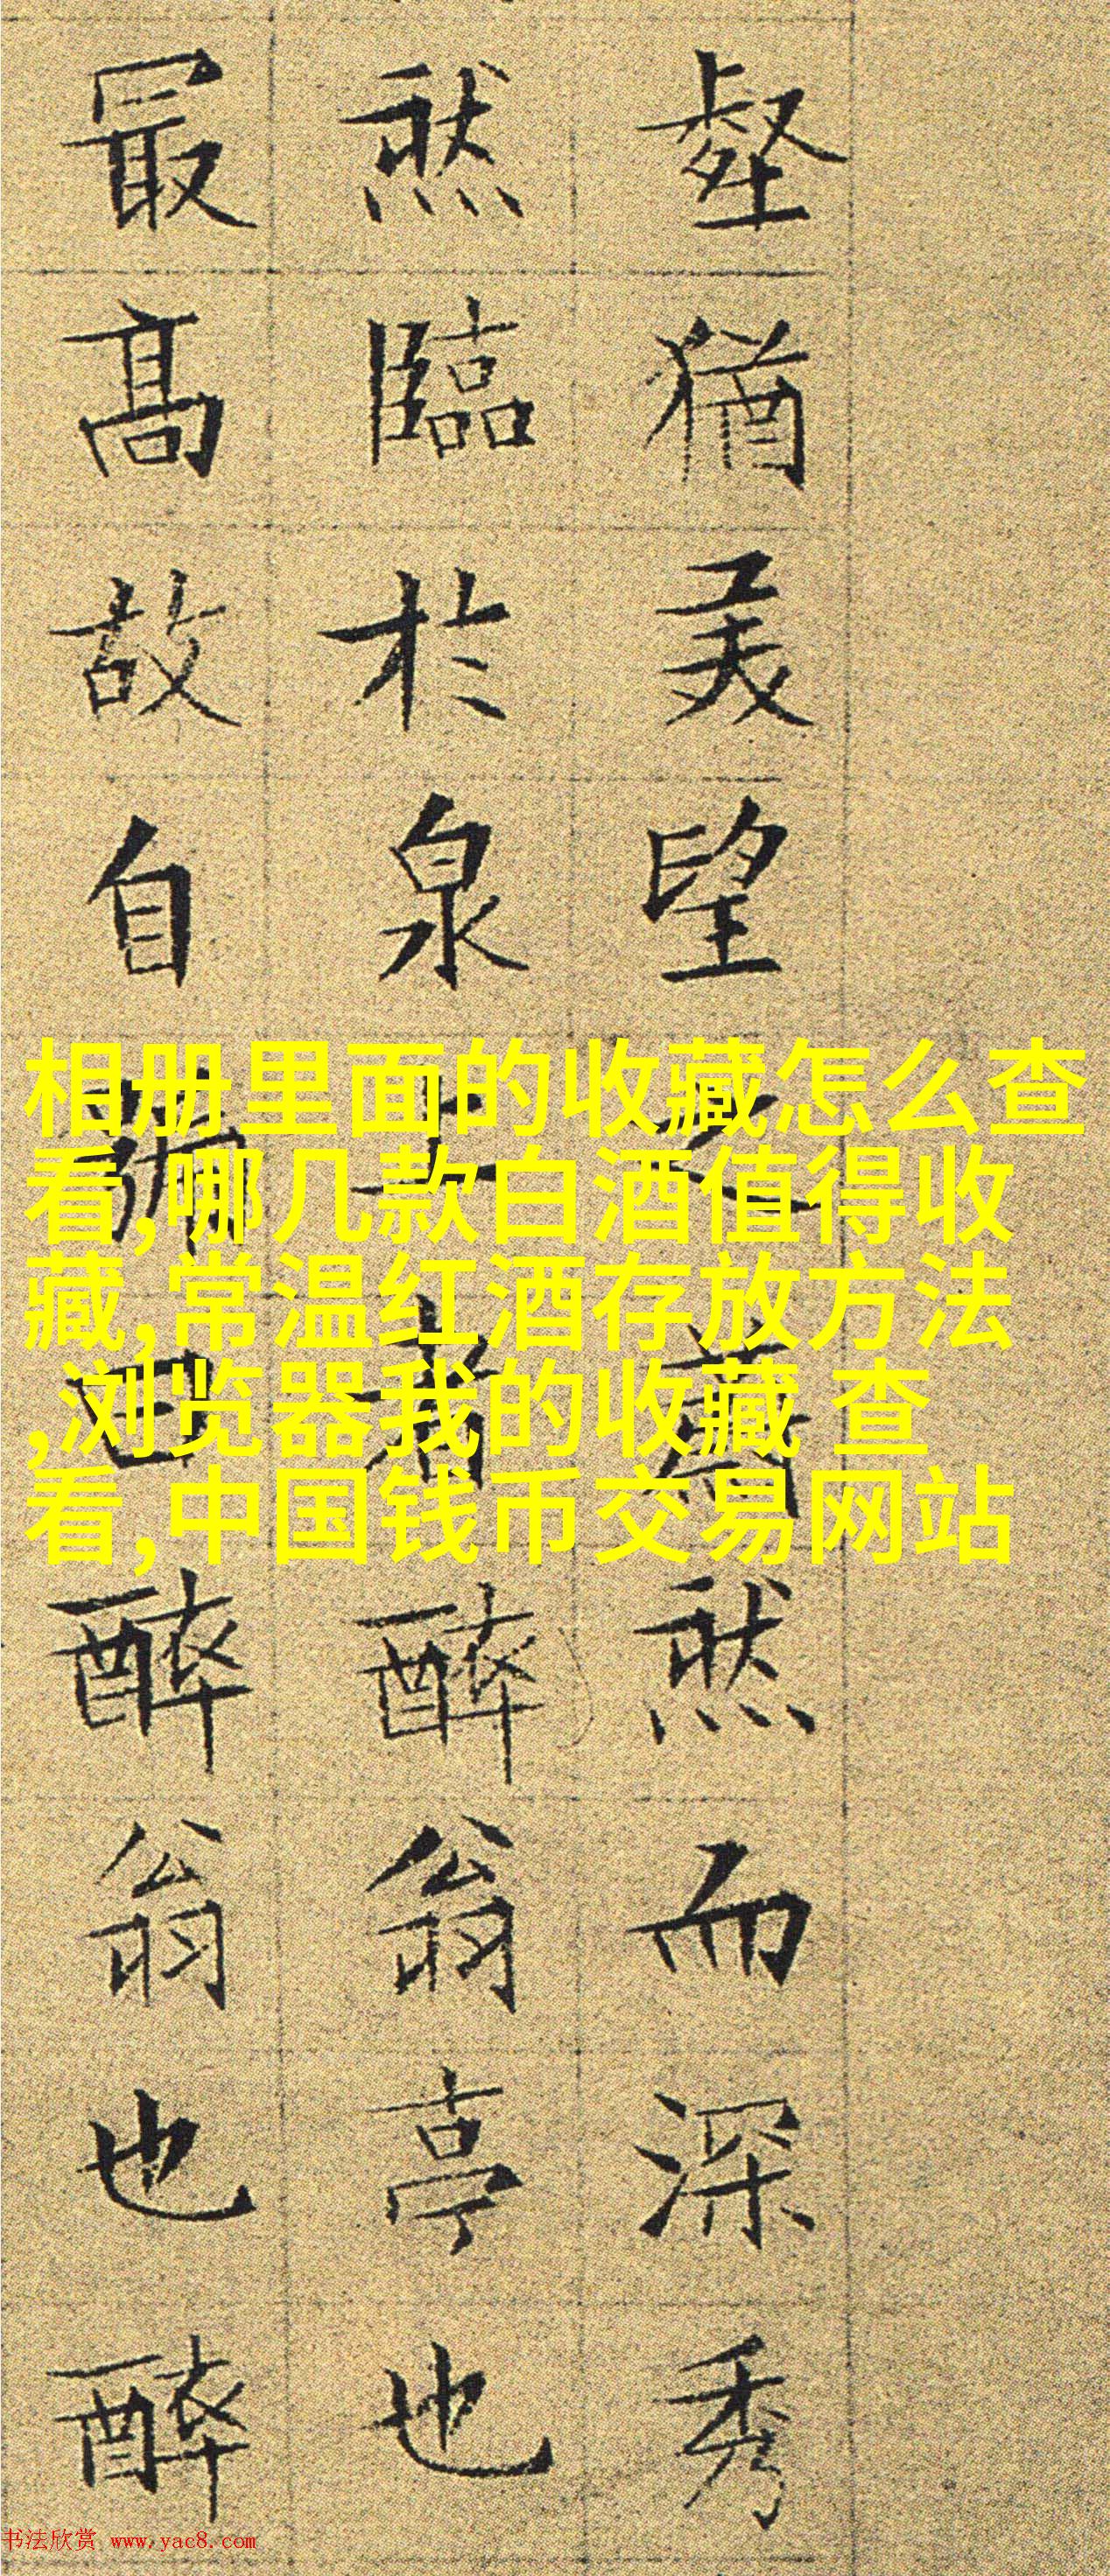 壑猶美望之蔚然而深秀
然臨於泉上者醉翁亭也
最高故自號曰醉翁也醉
相册里面的收藏怎么查
看,哪几款白酒值得收
藏,常温红酒存放方法
,浏览器我的收藏 查
看,中国钱币交易网站
书法欣赏 www.yac8.com